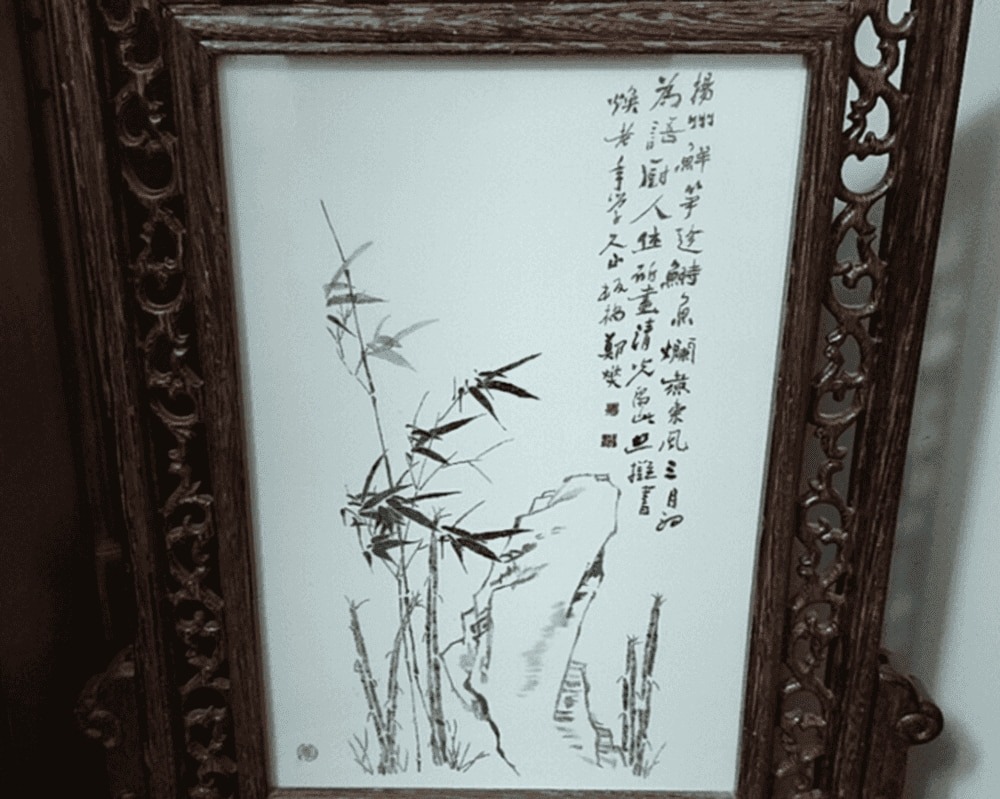 揚州鮮筍趁鰣魚爛煮東風三月初
為語厨人休斫盡清光留此照攤書
煥老年學兄板橋鄭燮